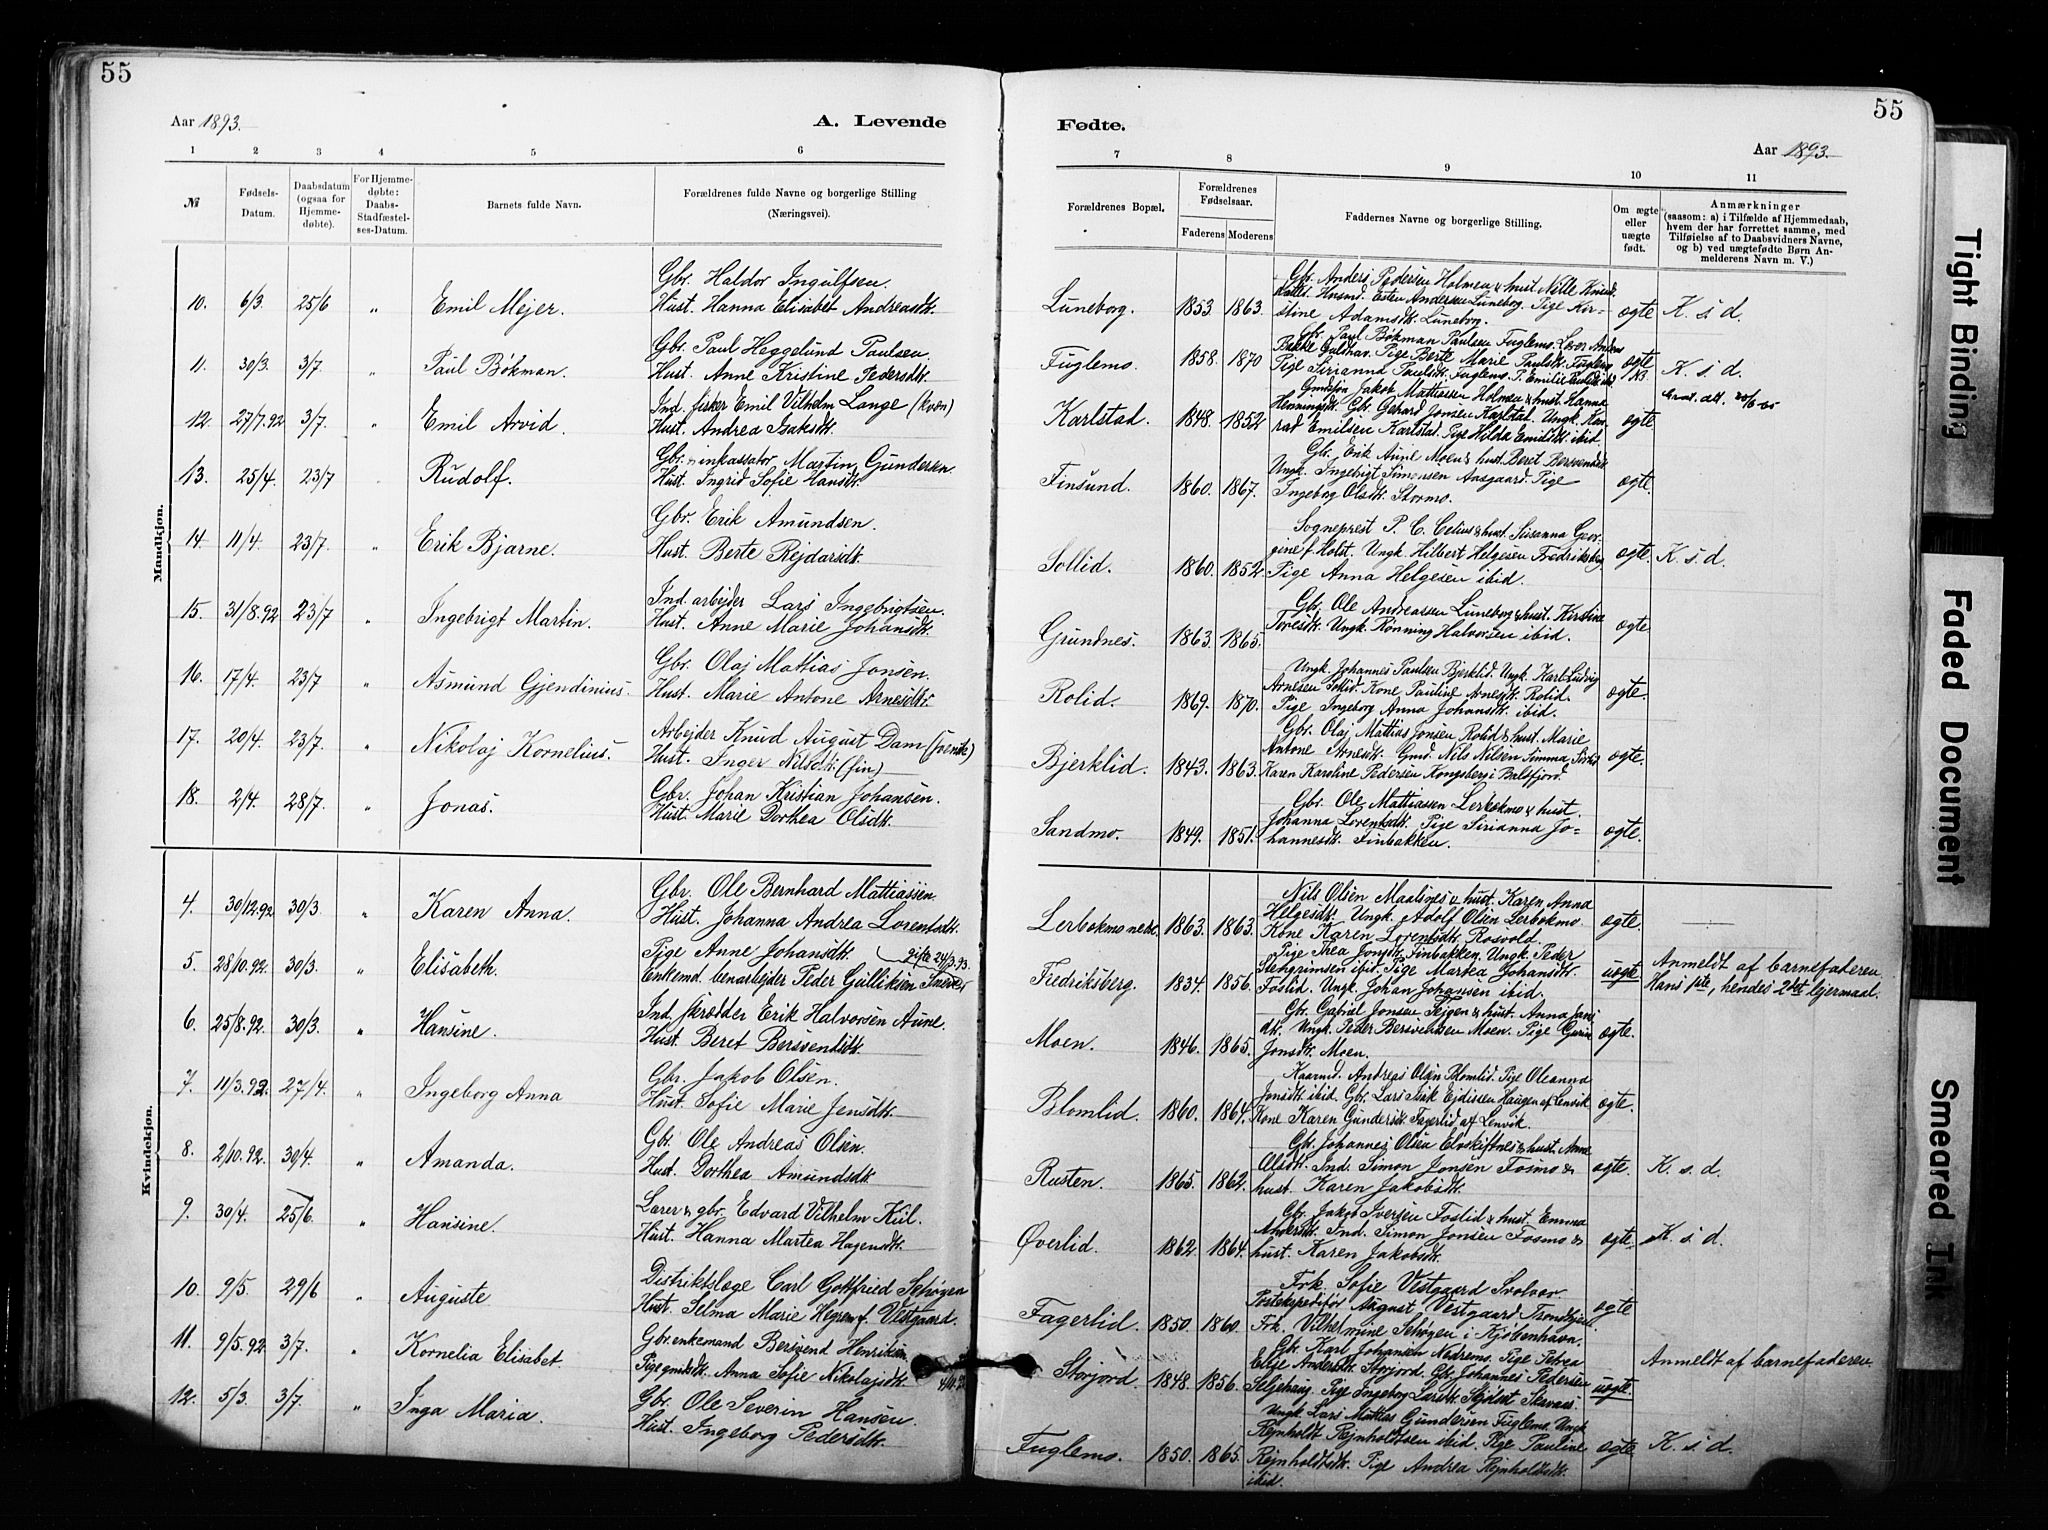 55
55
Aar 1893.
A. Levende
Fødte.
Aar 1893.
1 2 3 4 5 6 7 8 9 10 11
№
Fødsels-Datum.
Daabsdatum (ogsaa for Hjemme-døbte).
For Hjemme-døbte: Daabs-Stadfæstel-ses-Datum.
Barnets fulde Navn.
Forældrenes fulde Navne og borgerlige Stilling (Næringsvei).
Forældrenes Bopæl.
Forældrenes Fødselsaar.
Faderens Moderens
Faddernes Navne og borgerlige Stilling.
Om ægte eller uægte født.
Anmærkninger
(saasom: a) i Tilfælde af Hjemmedaab, hvem der har forrettet samme, med Tilføielse af to Daabsvidners Navne, og b) ved uægtefødte Børn An-melderens Navn m. V.)
Mandkjøn.
10. 6/3. 25/6 " Emil Mejer. Gbr. Haldor Ingulfsen. Hust. Hanna Elisabet Andreasdtr. Luneborg. 1853 1863. Gbr. Anders Pedersen Holmen & hust. Nille Knuds- Husmd. Esten Andersen Luneborg. Pige Kir-stine Adamsdtr. Luneborg. ægte K. s. d.
11. 30/3. 3/7. " Paul Bökman. Gbr. Paul Heggelund Paulsen. Hust. Anne Kristine Pedersdtr. Fuglemo. 1858. 1870 Gbr. Paul Bökman Paulsen Fuglemo. Lærer Anders Bakke Guldhav. Pige Berte Marie Paulsdtr. Fuglemo Pige Sirianna Paulsdtr. Fuglemo. P. Emilie Paulsdtr. ibid ægte K. s. d.
12. 27/7.92 3/7. " Emil Arvid. Ind. fisker Emil Vilhelm Lange (kvæn) Hust. Andrea Isaksdtr. Karlstad. 1848. 1852 Jakob Mattiassen Holmen & hust. Hanna Henningsdtr. Gbr. Gerard Jonsen Karlstad. Ungk. Kon-rad Emilsen Karlstad. Pige Hilda Emilsdtr. ibid. ægte
13. 25/4. 23/7 Rudolf. Gbr. & inkassator Martin Gundersen Hust. Ingrid Sofie Hansdtr. Finsund. 1860. 1867. Gbr. Erik Aune Moen & hust. Beret Bersvendsdtr. Ungk. Ingebrigt Simonsen Aasgaard. Pige Ingeborg Olsdtr. Stormo. ægte.
14. 11/4. 23/7. " Erik Bjarne. Gbr. Erik Amundsen. Hust. Berte Rejdarsdtr. Sollid. 1860. 1852. Sogneprest P. C. Celius & hust. Susanna Geor-gine f. Holst. Ungk. Hilbert Helgesen Fredriksberg Pige Anna Helgesen ibid. ægte. K. s. d.
15. 31/8.92 23/7 " Ingebrigt Martin. Ind. arbejder Lars Ingebrigtsen. Hust. Anne Marie Johansdtr. Grundnes. 1863. 1865. Gbr. Ole Andreassen Luneborg & hust. Kirstine Toresdtr. Ungk. Rönning Halvorsen ibid. ægte
16. 17/4. 23/7 " Asmund Gjendinius. Gbr. Olaj Mattias Jonsen. Hust. Marie Antone Arnesdtr. Rolid. 1869. 1870. Ungk. Johannes Paulsen Bjerklid. Ungk. Karl Ludvig Arnesen Sollid. Kone Pauline Arnesdtr. Rolid. Pige Ingeborg Anna Johansdtr. ibid. ægte.
17. 20/4. 23/7. " Nikolaj Kornelius. Arbejder Knud August Dam (svensk) Hust. Inger Nilsdtr. (fin) Bjerklid. 1843. 1863. Gbr. Olaj Mattias Jonsen Rolid & hust. Marie Antone Arnesdtr. Gmd. Nils Nilsen Simma Karen Karoline Pedersen Kongsberg i Balsfjord. ægte.
18. 2/4. 28/7. " Jonas. Gbr. Johan Kristian Johansen. Hust. Marie Dorthea Olsdtr. Sandmo. 1849. 1851. Gbr. Ole Mattiassen Lerbekmo & hust. Johanna Lorentsdtr. Pige Sirianna Jo-hannesdtr. Finbakken. ægte.
Kvindekjøn.
4. 30/12.92 30/3. " Karen Anna. Gbr. Ole Bernhard Mattiassen. Hust. Johanna Andrea Lorentsdtr. Lerbekmo nedre. 1863. 1863. Nils Olsen Maalsnes & hust. Karen Anna Helgesdtr. Ungk. Adolf Olsen Lerbekmo. Kone Karen Lorentsdtr. Rosvold. ægte.
5. 28/10.92. 30/3. " Elisabeth. Pige Anne Johansdtr. gifte 24/3.93. Enkemd. benarbejder Peder Gulliksen Fredriksberg. 1834. 1856. Pige Thea Jonsdtr. Finbakken. Ungk. Peder Stengrimsen ibid. Pige Martea Johansdtr. Foslid. Ungk. Johan Johansen ibid. uægte Anmeldt af barnefaderen. Hans 1ste, hendes 2det lejermaal.
6. 25/8.92. 30/3. " Hansine. Ind. skrædder Erik Halvorsen Aune. Hust. Beret Bersvendsdtr. Moen. 1846. 1865. Gbr. Gabriel Jonsen Tejgen & hust. Anna dtr. Ungk. Peder Bersvendsen Moen. Pige Jonsdtr. Moen. ægte.
7. 11/3.92. 27/4. " Ingeborg Anna Gbr. Jakob Olsen. Hust. Sofie Marie Jensdtr. Blomlid. 1860. 1864. Kaarmd. Andreas Olsen Blomlid. Pige Oleanna Jonsdtr. ibid. Gbr. Lars Ejdissen Haugen af Lenvik Kone Karen Gundersdtr. Fagerlid af Lenvik. ægte.
8. 2/10.92. 30/4. " Amanda. Gbr. Ole Andreas Olsen. Hust. Dorthea Amundsdtr. Rusten. 1865. 1862. Gbr. Johannes Olsen Elvskiftnes & hust. Anne Olsdtr. Ind. Simon Jonsen Fosmo & hust. Karen Jakobsdtr. ægte. K. s. d.
9. 30/4. 25/6. " Hansine. Lærer & gbr. Edvard Vilhelm Kiil. Hust. Hanna Martea Hagensdtr. Øverlid. 1862. 1864. Gbr. Jakob Iversen Foslid & hust. Emma Ind. Simon Jonsen Fosmo & hust. Karen Jakobsdtr. ægte. K. s. d.
10. 9/5. 29/6 " Auguste Distriktslæge Carl Gottfried Schøyen Hust. Selma Marie f. Vestgaard. Fagerlid. 1850. 1860. Frk. Sofie Vestgaard Svolvær. Postekspeditør August Vestgaard Frk. Vilhelmine Schøyen i Kjøbenhavn. ægte
11. 9/5.92 3/7. " Kornelia Elisabet. Gbr. enkemand Bersvend Henriksen Pige Anna Sofie Nikolajsdtr. Storjord. 1848. 1856. Gbr. Karl Johansen Nedremo. Pige Petrea Elise Andersdtr. Storjord. Gbr. Johannes Pedersen Seljehaug. Pige Ingeborg Larsdtr. uægte. Anmeldt af barnefaderen
12. 5/3. 3/7. " Inga Maria. Gbr. Ole Severin Hansen. Hust. Ingeborg Pedersdtr. Fuglemo. 1850. 1865. Ungk. Lars Mattias Gundersen Fuglemo. Ungk. Rejnholdt Rejnholdtsen ibid. Pige Pauline Rejnholdtsdtr. Pige Andrea Rejnholdtsdtr. ibid. ægte K. s. d.
Tight Binding
Faded Document
Smeared Ink